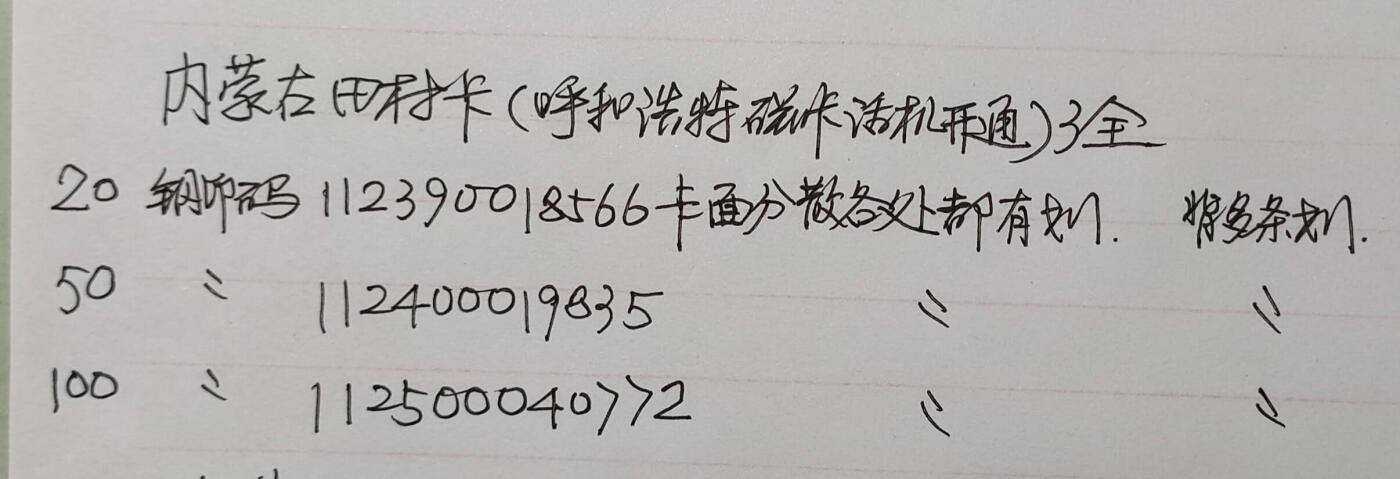 内蒙古田村卡(呼和浩特磁卡话机开通)3全
20 钢印码 112390018566 卡面分散各处都有划. 背多条划.
50 〃 112400019835 〃 〃
100 〃 112500040772 〃 〃